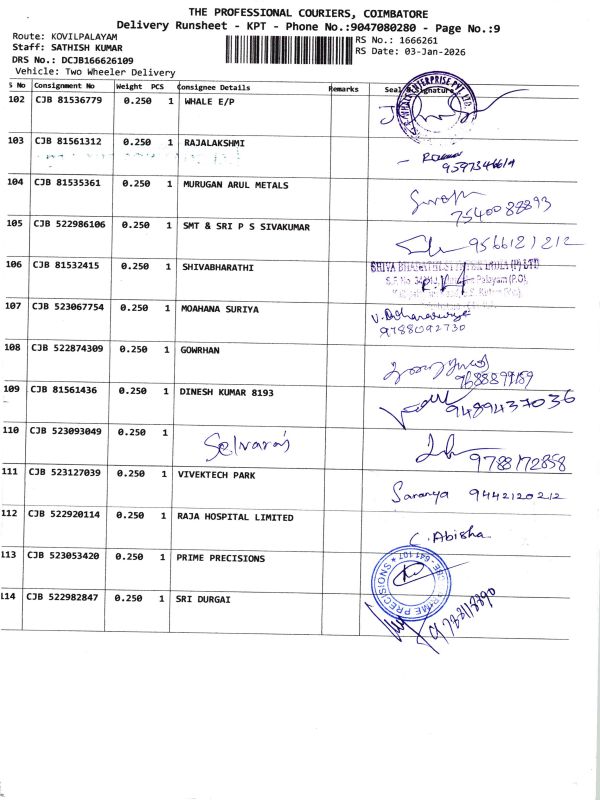 THE PROFESSIONAL COURIERS, COIMBATORE
Delivery Runsheet - KPT - Phone No.:9047080280 - Page No.:9
Route: KOVILPALAYAM
RS No.: 1666261
Staff: SATHISH KUMAR
RS Date: 03-Jan-2026
DRS No.: DCJB166626109
Vehicle: Two Wheeler Delivery
S No Consignment No Weight PCS Consignee Details Remarks Seal & Signature
102 CJB 81536779 0.250 1 WHALE E/P
103 CJB 81561312 0.250 1 RAJALAKSHMI
9597346619
104 CJB 81535361 0.250 1 MURUGAN ARUL METALS
7540088893
105 CJB 522986106 0.250 1 SMT & SRI P S SIVAKUMAR
9566121212
106 CJB 81532415 0.250 1 SHIVABHARATHI
107 CJB 523067754 0.250 1 MOAHANA SURIYA
9788092730
108 CJB 522874309 0.250 1 GOWRHAN
109 CJB 81561436 0.250 1 DINESH KUMAR 8193
9489437036
110 CJB 523093049 0.250 1 Selvaraj
9788172858
111 CJB 523127039 0.250 1 VIVEKTECH PARK
Saranya 9442120212
112 CJB 522920114 0.250 1 RAJA HOSPITAL LIMITED
C. Abisha
113 CJB 523053420 0.250 1 PRIME PRECISIONS
PRIME PRECISIONS * CBE - 641 107 *
114 CJB 522982847 0.250 1 SRI DURGAI